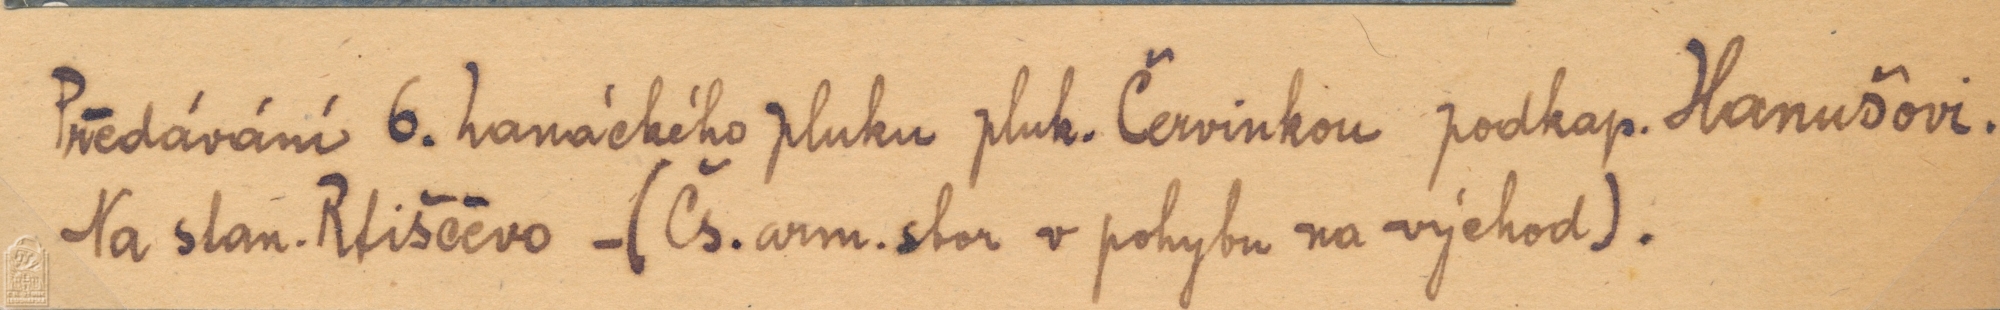 Předávání 6. hanáckého pluku pluk. Červinkou podkap. Hanušovi.
Na stan. Rtiščevo – (Čs. arm. sbor v pohybu na východ).